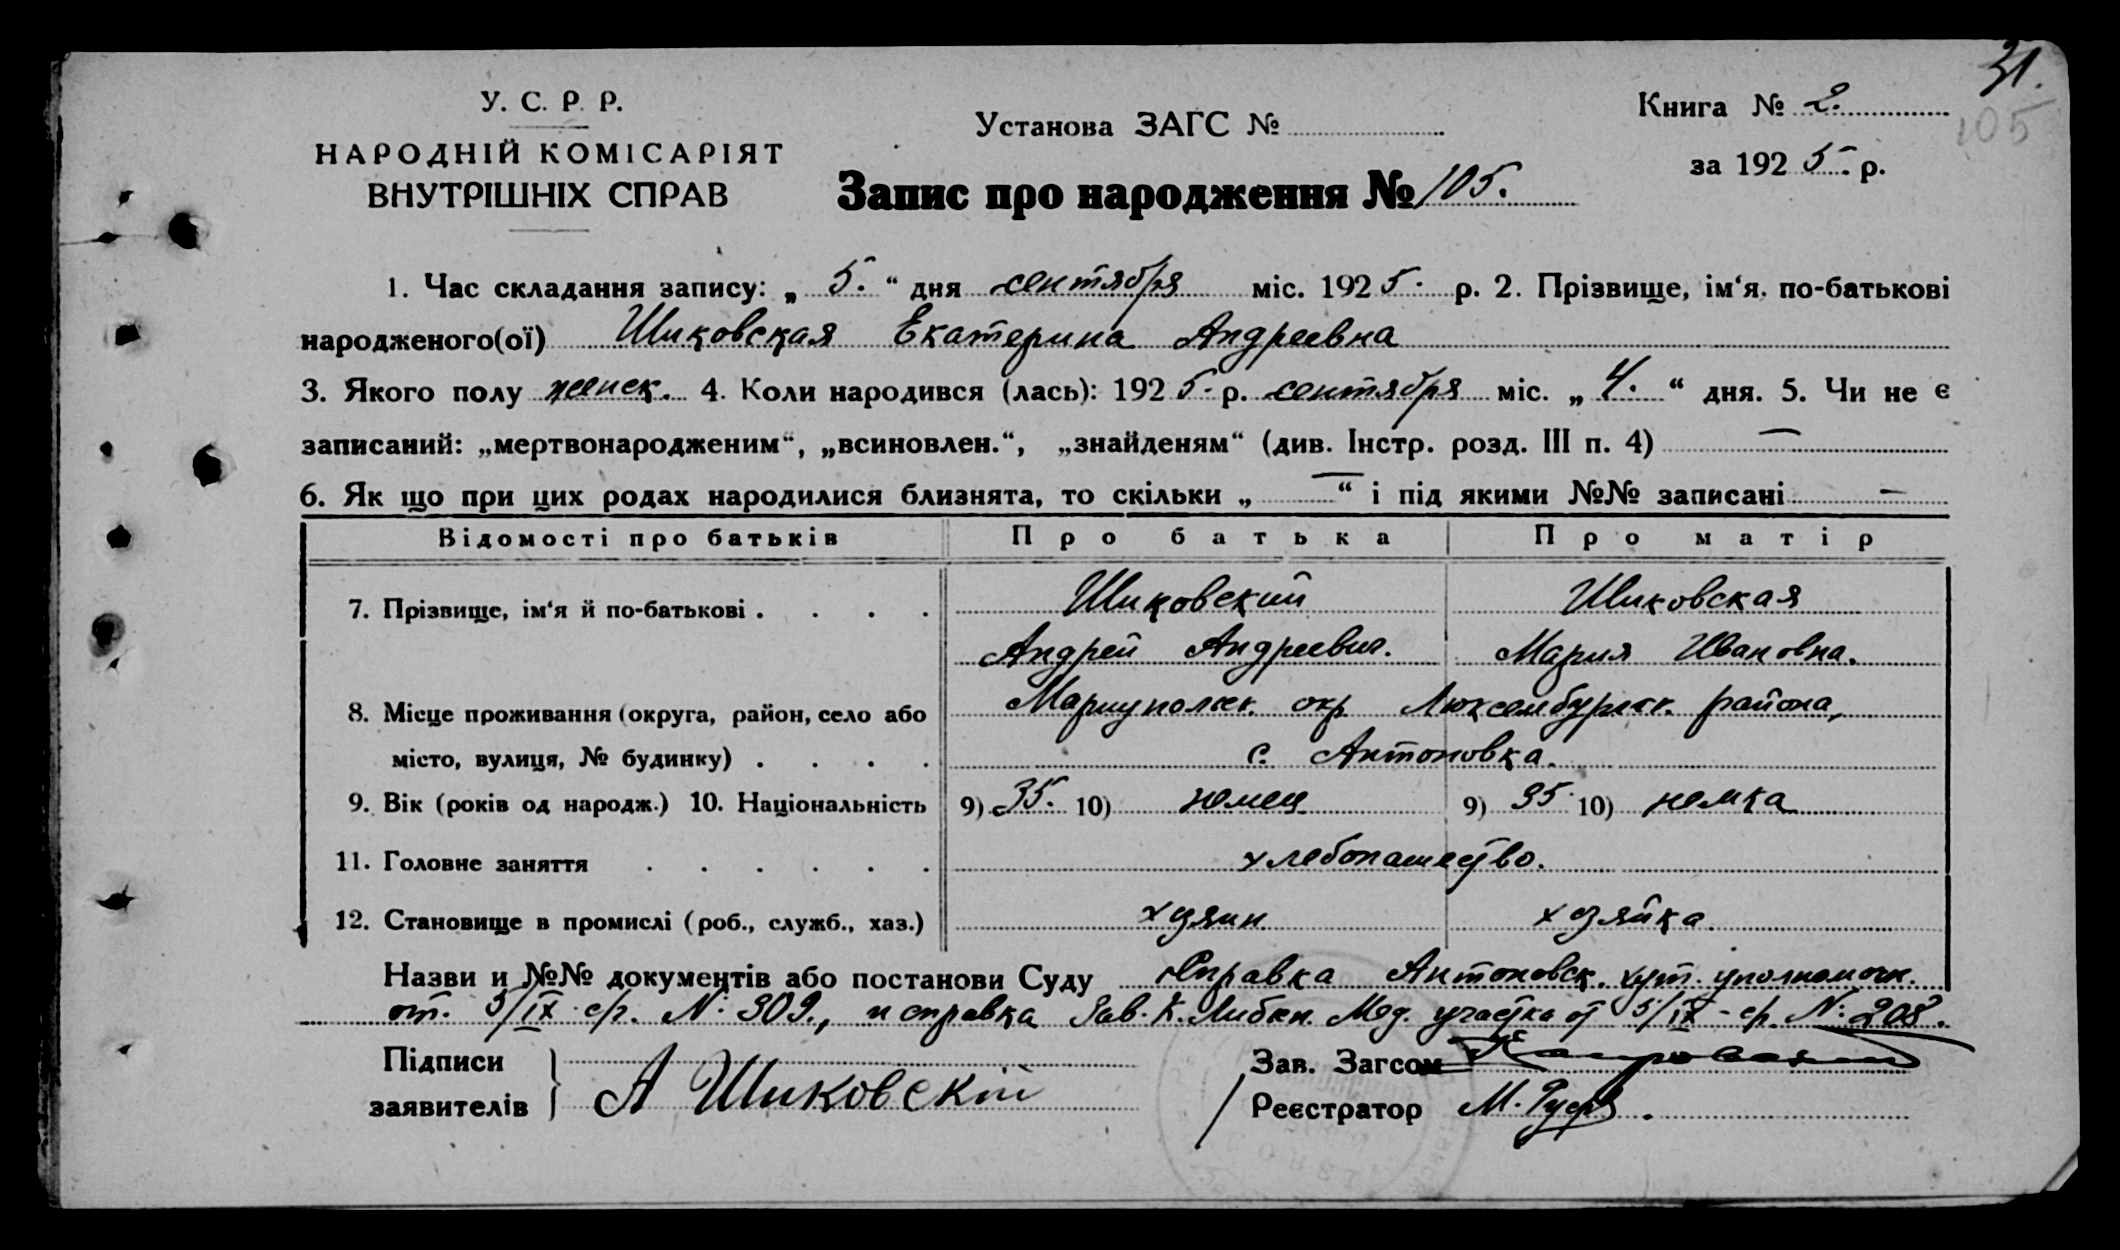 31.
105
У. С. Р. Р.
НАРОДНІЙ КОМІСАРІЯТ
ВНУТРІШНІХ СПРАВ
Установа ЗАГС №
Книга № 2.
за 1925. р.
Запис про народження № 105.
1. Час складання запису: „ 5. “ дня сентября міс. 1925. р. 2. Прізвище, ім‘я, по-батькові
народженого(ої) Шиковская Екатерина Андреевна
3. Якого полу женск. 4. Коли народився (лась): 1925. р. сентября міс. „ 4. “ дня. 5. Чи не є
записаний: „мертвонародженим“, „всиновлен.“, „знайденям“ (див. Інстр. розд. III п. 4) —
6. Як що при цих родах народилися близнята, то скільки „ — “ і під якими №№ записані —
Відомості про батьків Про батька Про матір
7. Прізвище, ім‘я й по-батькові . . . . Шиковский Шиковская
Андрей Андреевич. Мария Ивановна.
8. Місце проживання (округа, район, село або Мариупольск. окр Люксембургск. района,
місто, вулиця, № будинку) . . . . с. Антоновка.
9. Вік (років од народж.) 10. Національність 9) 35. 10) немец 9) 35. 10) немка
11. Головне заняття . . . . . . хлебопашество.
12. Становище в промислі (роб., служб., хаз.) хозяин хозяйка.
Назви и №№ документів або постанови Суду Справка Антоновск. хут. уполномоч.
от. 5/IX ср. №: 309., и справка Зав. К. Либкн. Мед. участка от 5/IX - ср. №: 208.
Підписи
заявителів } А Шиковскій
Зав. Загсом
Реєстратор М.